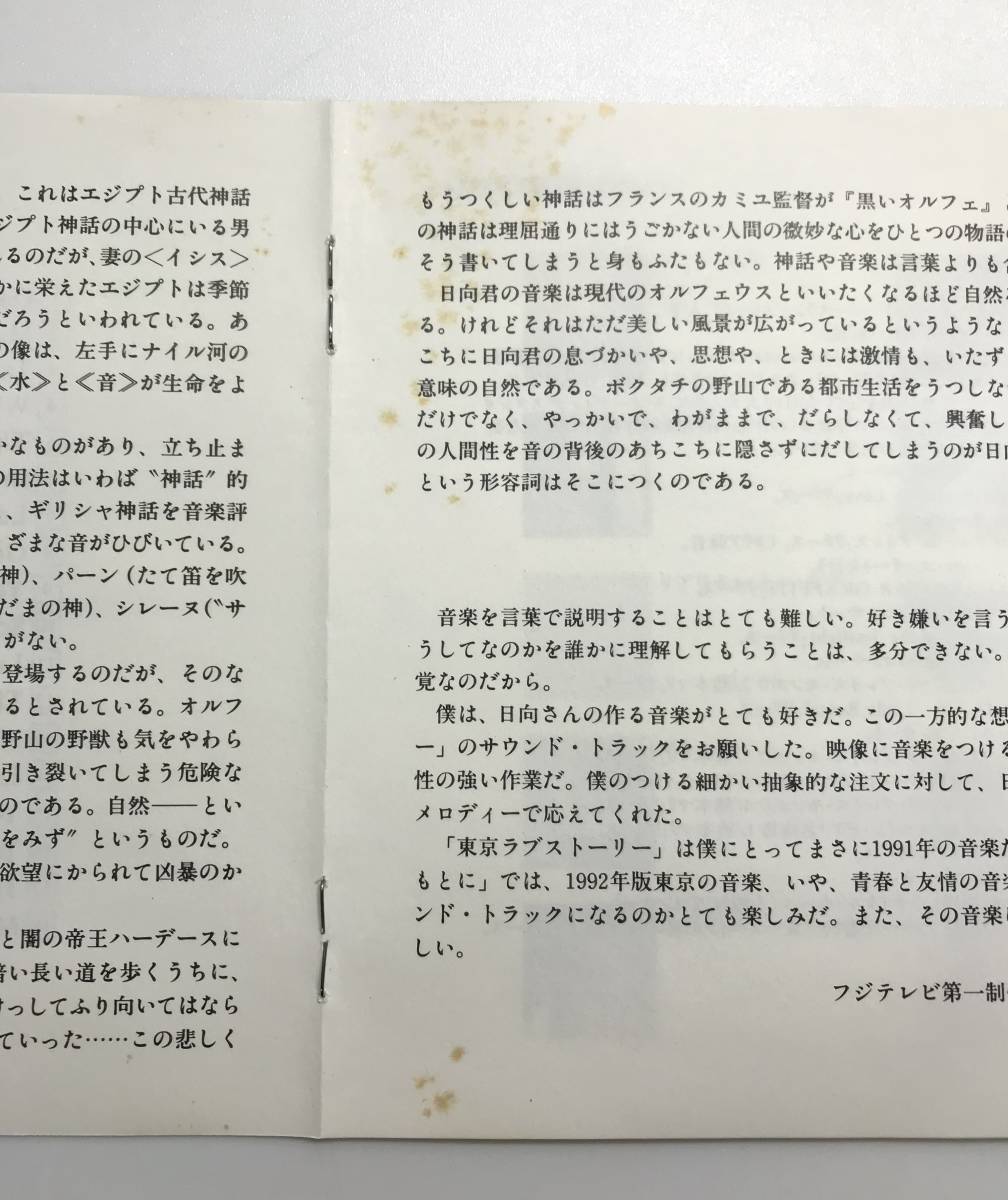 これはエジプト古代神話
ジプト神話の中心にいる男
るのだが、妻の＜イシス＞
かに栄えたエジプトは季節
だろうといわれている。あ
の像は、左手にナイル河の
≪水≫と≪音≫が生命をよ
かなものがあり、立ち止ま
の用法はいわば〝神話〟的
、ギリシャ神話を音楽評
ざまな音がひびいている。
神)、パーン(たて笛を吹
だまの神)、シレーヌ(〝サ
がない。
登場するのだが、そのな
るとされている。オルフ
野山の野獣も気をやわら
引き裂いてしまう危険な
のである。自然――とい
をみず〟というものだ。
欲望にかられて凶暴のか
と闇の帝王ハーデースに
暗い長い道を歩くうちに、
けっしてふり向いてはなら
ていった……この悲しく
もうつくしい神話はフランスのカミユ監督が『黒いオルフェ』
の神話は理屈通りにはうごかない人間の微妙な心をひとつの物語
そう書いてしまうと身もふたもない。神話や音楽は言葉よりも
日向君の音楽は現代のオルフェウスといいたくなるほど自然
る。けれどそれはただ美しい風景が広がっているというような
こちに日向君の息づかいや、思想や、ときには激情も、いたず
意味の自然である。ボクタチの野山である都市生活をうつしな
だけでなく、やっかいで、わがままで、だらしなくて、興奮し
の人間性を音の背後のあちこちに隠さずにだしてしまうのが日
という形容詞はそこにつくのである。
音楽を言葉で説明することはとても難しい。好き嫌いを言う
うしてなのかを誰かに理解してもらうことは、多分できない。
覚なのだから。
僕は、日向さんの作る音楽がとても好きだ。この一方的な想
ー」のサウンド・トラックをお願いした。映像に音楽をつける
性の強い作業だ。僕のつける細かい抽象的な注文に対して、
メロディーで応えてくれた。
「東京ラブストーリー」は僕にとってまさに1991年の音楽だ
もとに」では、1992年版東京の音楽、いや、青春と友情の音
ンド・トラックになるのかとても楽しみだ。また、その音楽
しい。
フジテレビ第一制